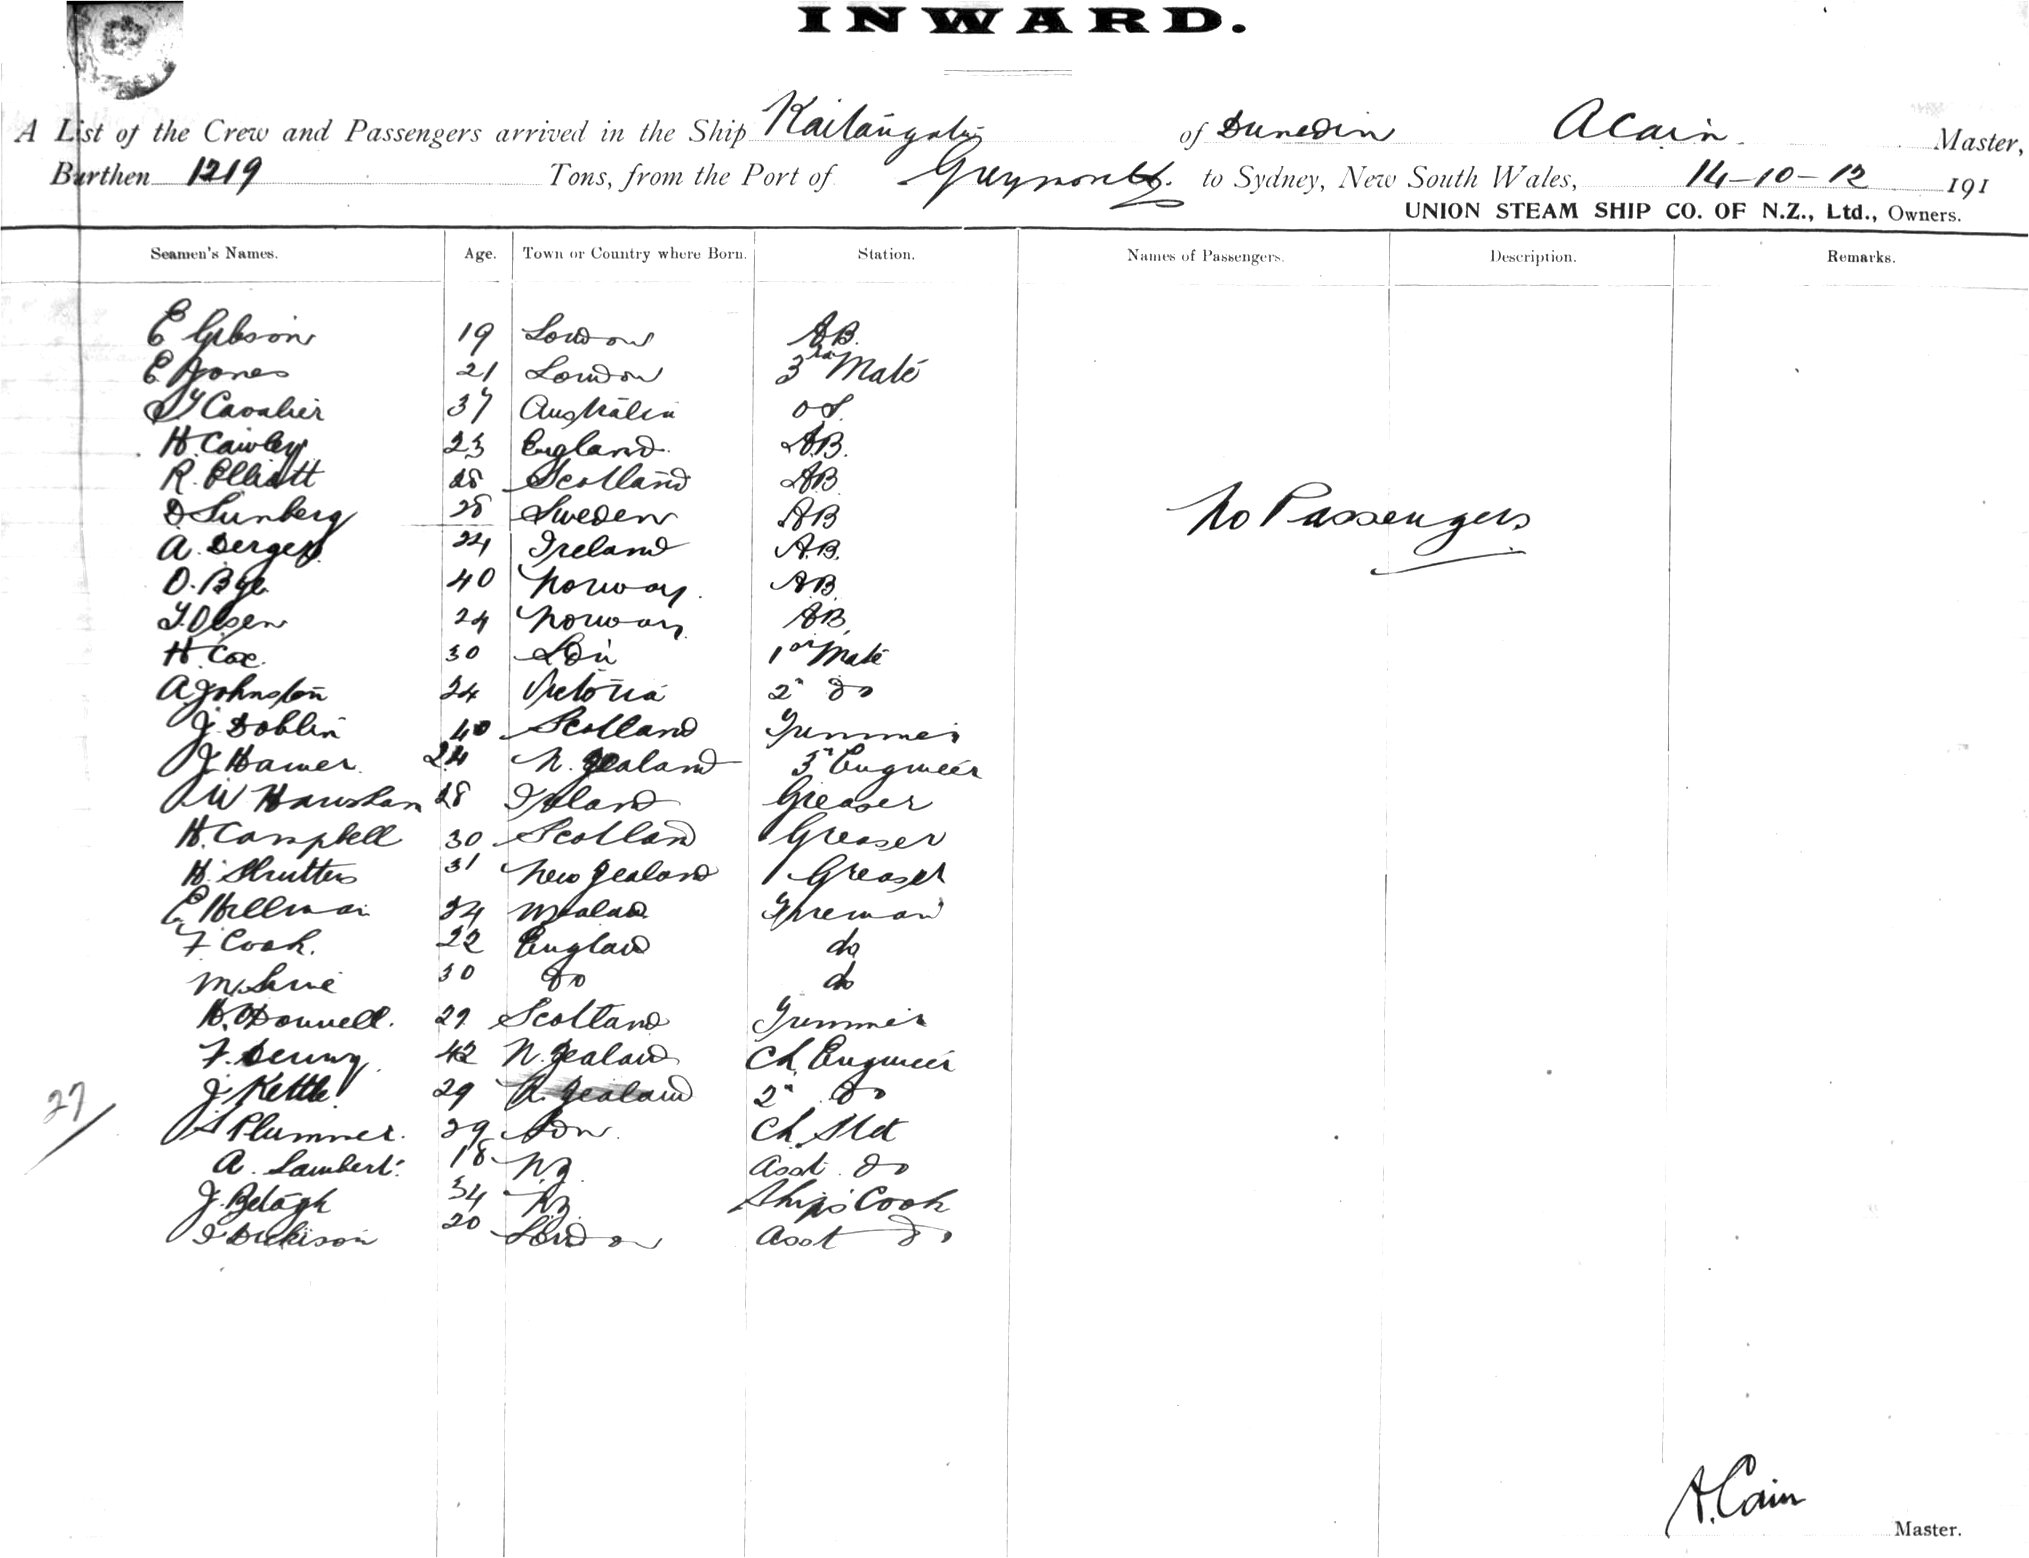 INWARD.
A List of the Crew and Passengers arrived in the Ship Kaitangata of Dunedin A Cain Master,
Burthen 1219 Tons, from the Port of Greymouth. to Sydney, New South Wales, 14-10-12 191
UNION STEAM SHIP CO. OF N.Z., Ltd., Owners.
Seamen's Names. Age. Town or Country where Born. Station. Names of Passengers. Description. Remarks.
E Gibson 19 London AB.
E Jones 21 London 3rd Mate
Cavalier 37 Australia OS.
H. Cawley 23 England. AB.
R. Elliott 28 Scotland AB
D Sunberg 28 Sweden AB
No Passengers
A. 24 Ireland A.B.
O. Bye 40 Norway. AB.
T. Olsen 24 Norway. AB.
H. Cox. 30 1st Mate
A Johnston 24 Victoria 2n do
J Doblin 40 Scotland Trimmer
J Hamer. 24 N. Zealand 3r Engineer
W 28 Ireland Greaser
H. Campbell 30 Scotland Greaser
H. 31 New Zealand Greaser
E Hillman 24 Fireman
F Cook. 22 England do
M. 30 do do
H. O'Donnell. 29 Scotland Trimmer
F. Denny. 42 N. Zealand Ch. Engineer
J Kettle. 29 N. Zealand 2n do
27
S Plummer. 29 Lon. Ch. Std
A. Lambert. 18 N.Z. Asst. do
J. Betagh 34 NZ. Ship's Cook
J Dickison 20 London Asst do
A. Cain
Master.